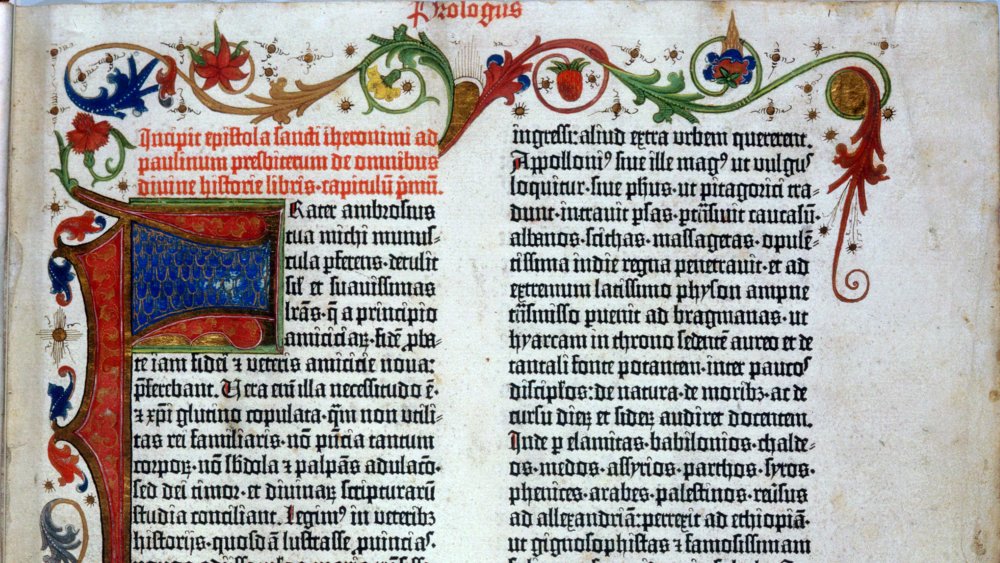 Prologus
Incipit epistola sancti iheronimi ad
paulinum presbiterum de omnibus
divine historie libris·capitulū p̄mū.
Frater ambrosius
tua michi munus⸗
cula p̄ferens·detulit
sil̄ et suavissimas
lr̄as·q̄ a principio
amiciciaꝝ·fidē ꝓba⸗
te iam fidei ⁊ veteris amicicie nova:
p̄ferebant. Vera em̄ illa necessitudo ē·
⁊ xp̄i glutino copulata·q̄m non utili⸗
tas rei familiaris·nō p̄ncia tantum
corpoꝝ·nō sb̄dola ⁊ palpās adulaco·
sed dei timor·et divinaꝝ scripturarū
studia conciliant. Legim⁹ in veteribꝫ
historijs·quosdā lustrasse ꝓuincias·
ingressi:aliud extra urbem quererent.
Appolloni⁹ sive ille mag⁹ ut vulgus
loquitur·sive ph̄us·ut pitagorici tra⸗
dunt·intravit p̄sas·ptrāsivit caucasū·
albanos·scithas·massagetas·opulē⸗
tissima indie regna penetravit·et ad
extremum latissimo physon ampne
trāsmisso pervenit ad bragmanas·ut
hyarcam in throno sedentē aureo et de
tantali fonte potantem·inter paucos
discipl̄os:de natura·de moribꝫ·ac de
cursu dieꝝ et sideꝝ audiret docentem.
Inde p elamitas·babilonios·chalde⸗
os·medos·assyrios·parthos·syros·
phenices·arabes·palestinos·reversus
ad allexandriā:perrexit ad ethiopiā·
ut gignosophistas ⁊ famosissimam